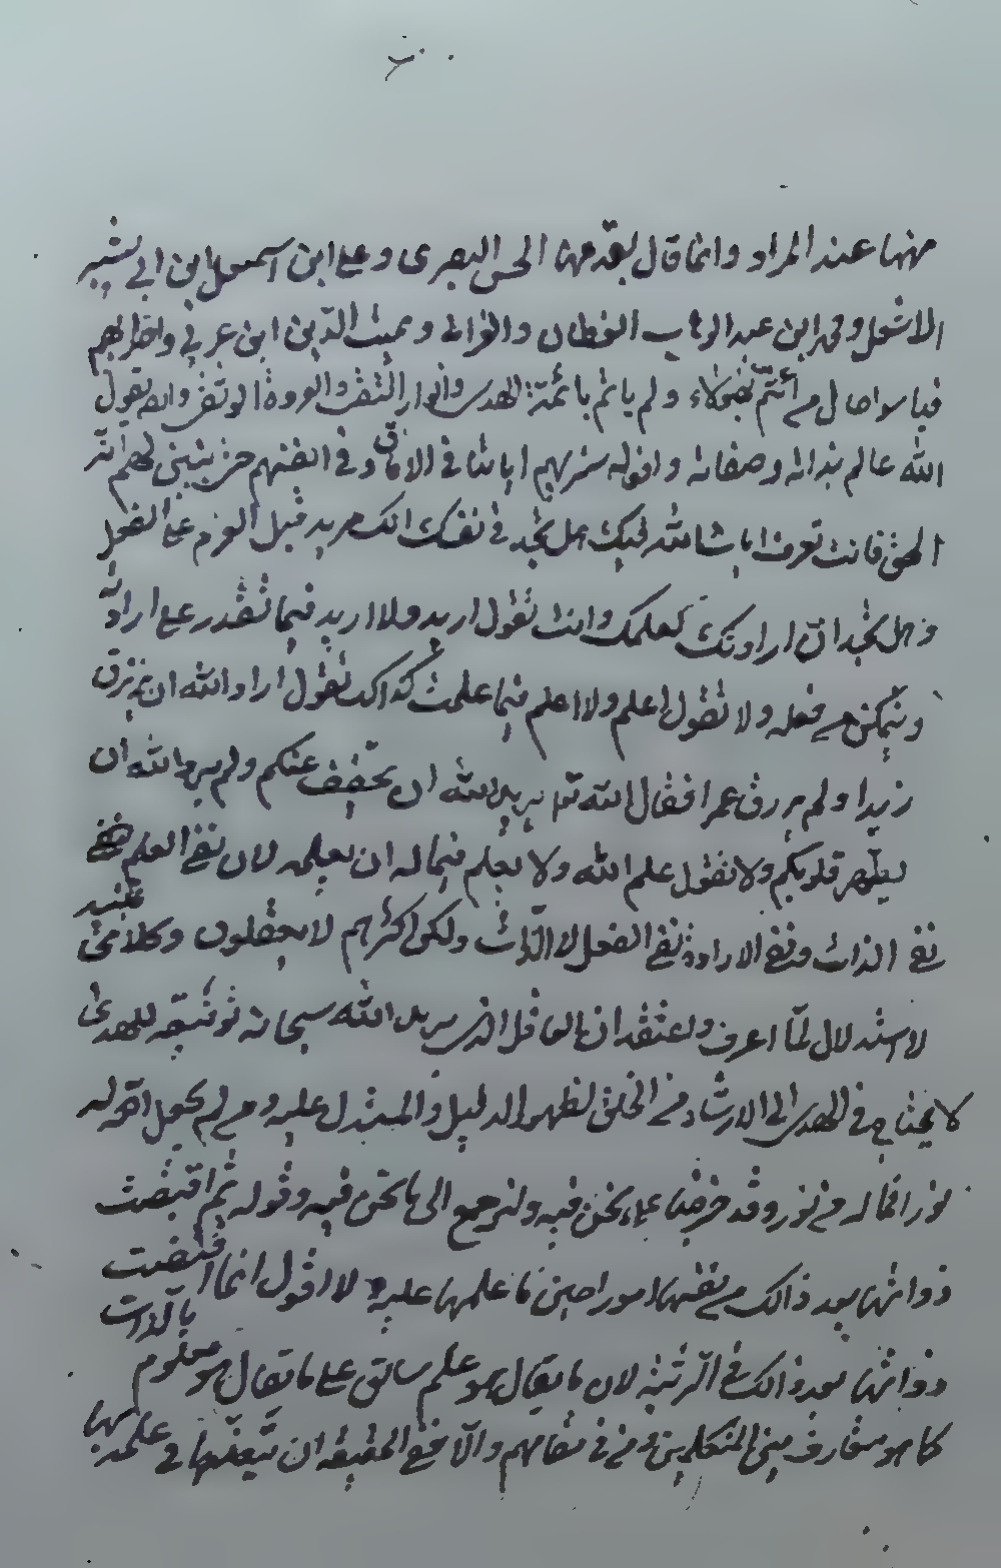 منها عند المراد وانما قال بقدمها الحسن البصرى وعلي ابن اسمعيل ابن ابي بشير
الاشعرى ومحمد ابن عبد الوهاب القطان والغزالي ومميت الدين ابن عربي واضرابهم
فيا سوء حال من ائتم بهؤلاء ولم ياتم بائمة الهدى وانوار التقى والعروة الوثقى وانه يقول
الله عالم بذاته وصفاته وانه قوله سنريهم اياتنا في الافاق وفي انفسهم حتى يتبين لهم انه
الحق فانت تعرف ايات الله فيك هل تجد في نفسك انك مريد قبل العزم على الفعل
وهل تجد ان ارادتك كعلمك وانت تقول اريد ولا اريد فيما تقدر على ارادته
وتتمكن من فعله ولا تقول اعلم ولا اعلم فيما علمت كذلك تقول اراد الله ان يرزق
زيدا ولم يرزق عمرا فقال الله تعالى يريد الله ان يخفف عنكم ولم يرد الله ان
يطهر قلوبكم ولا تقول علم الله ولا يعلم فيما له ان يعلمه لان نفي العلم نفي
نفي الذات ونفي الارادة نفي الفعل لا الذات ولكن اكثرهم لا يعقلون وكلامي تنبيه
لا استدلال لما اعرف واعتقد ان العاقل الذي يريد الله سبحانه توفيقه للهدى
لا يحتاج في الهدى الى الارشاد من الخلق لظهور الدليل والمستدل عليه ومن لم يجعل الله له
نورا فما له من نور وقد خرجنا عما نحن فيه ولنرجع الى ما نحن فيه وقوله ثم اقتضت
ذواتها بعد ذالك من نفسها امورا هي عين ما علمها عليه لا اقول انما اقتضت
ذواتها بعد ذالك في الرتبة لان ما يقال هو علم سابق على ما يقال هو معلوم بالذات
كما هو متعارف بين المتكلمين في مقامهم والا ففي الحقيقة ان تعلقها في علمه بها